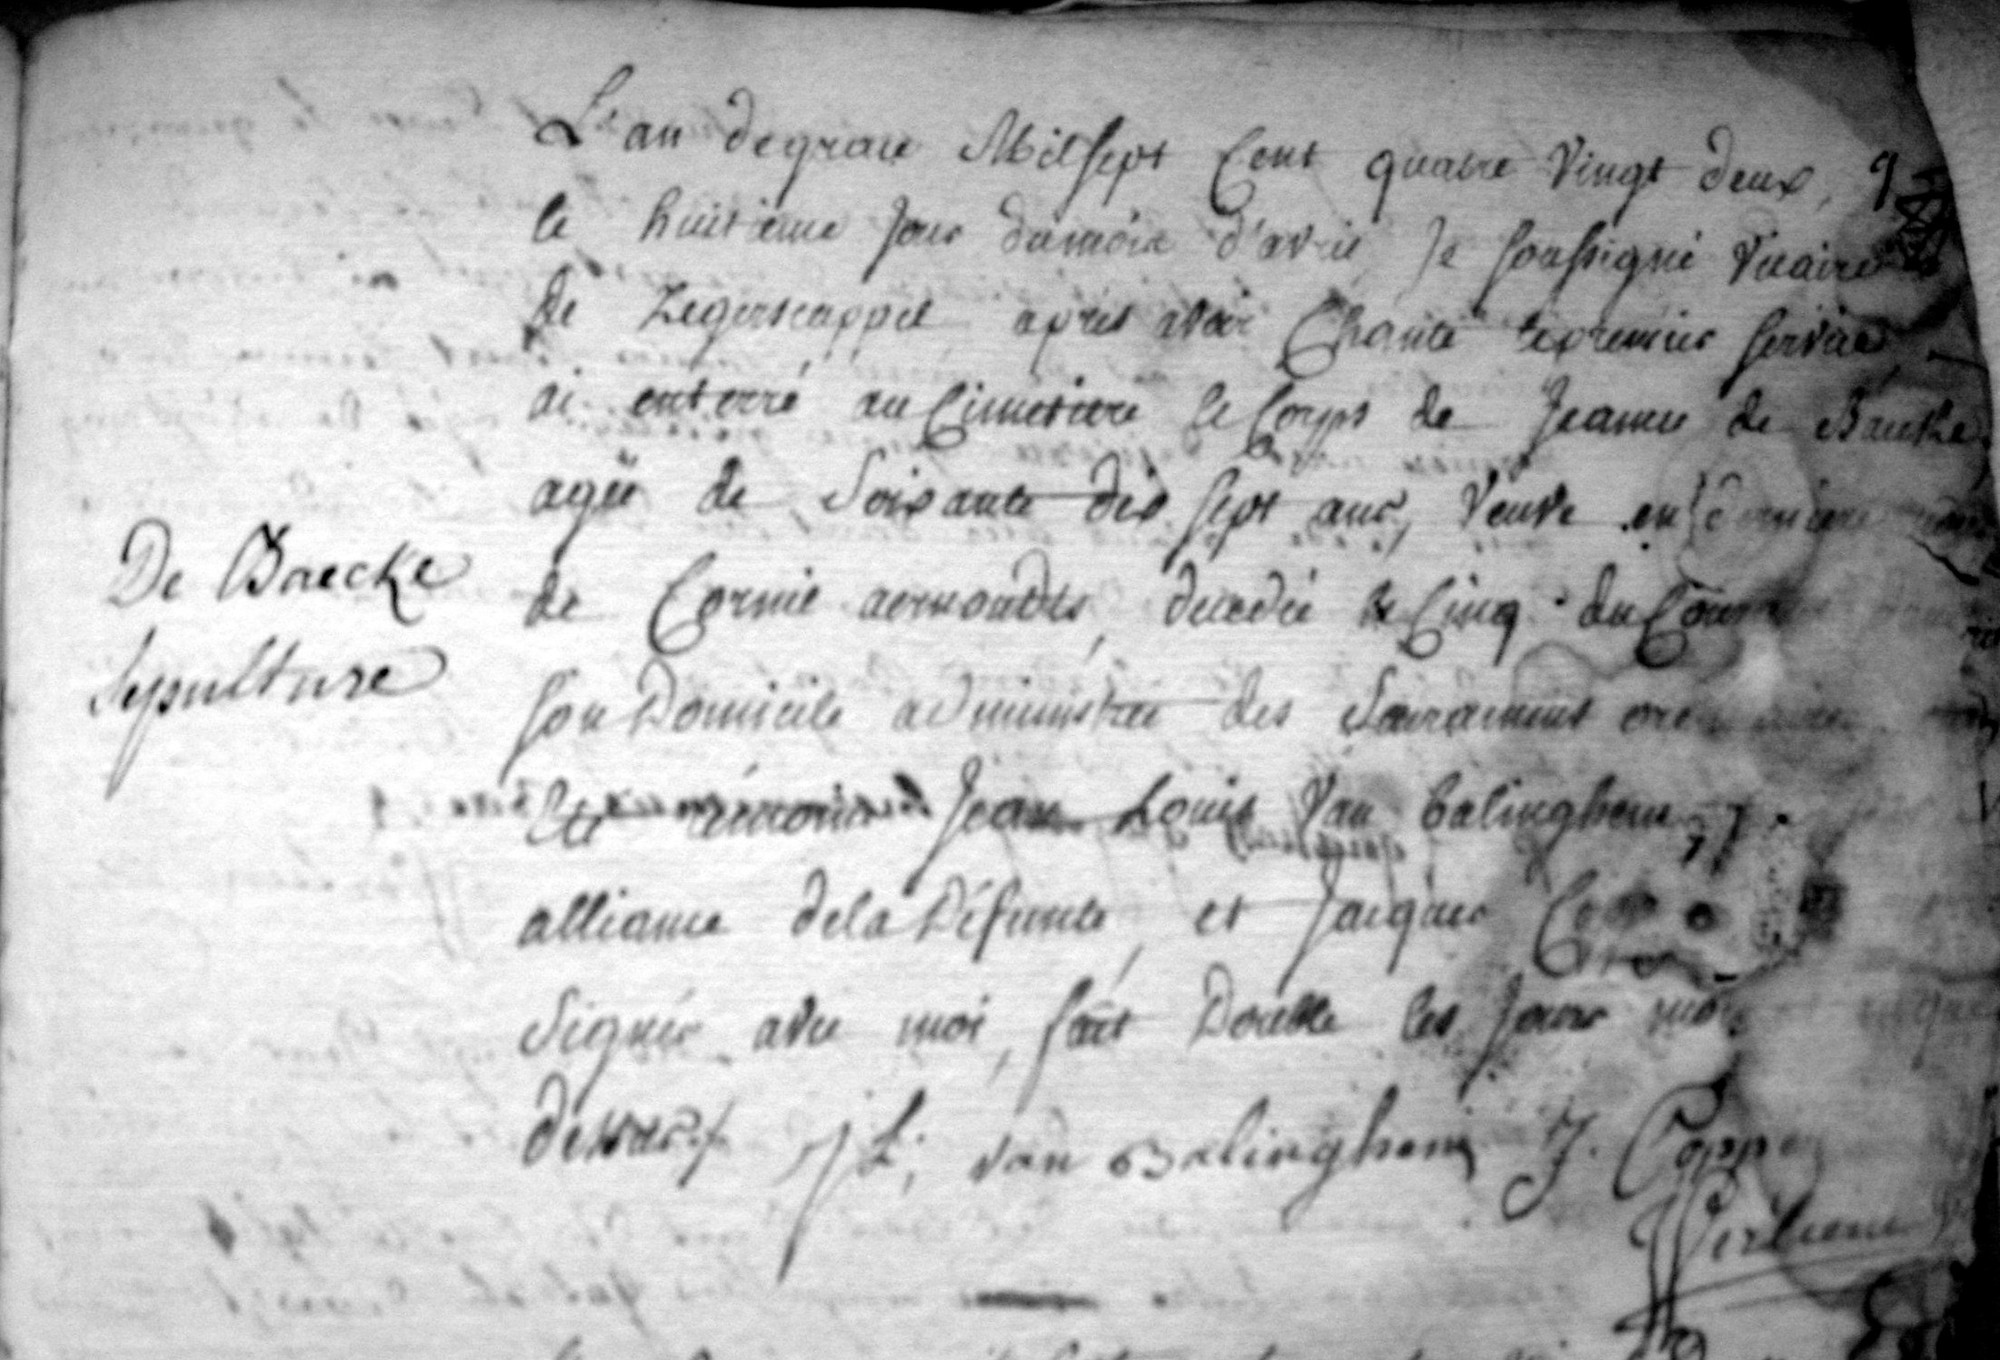 L'an degrace Mil sept Cent quatre Vingt deux,
le huitieme Jour dumois d'avril Je soussigné Vicaire
de Zegerscappel après avoir Chanté lepremier service
ai enterré au Cimetiere le Corps de Jeanne de Baecke,
agée de Soixante dix sept ans, Veuve en derniere
De Baecke
de Cornil aernoudts, decedée le Cinq du
Sepulture
son Domicile administrée des Sacraments
été Jean Louis Van balinghem
alliance dela Défunte, et Jacques
Signés avec moi, fait Double les Jour mois
dessus J L. van Balinghem J. Coppe